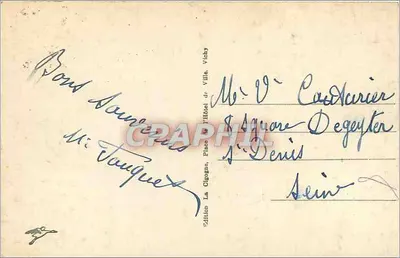 Bons souvenirs
Mr Fouquet
Edition La Cigogne, Place de l'Hôtel de Ville, Vichy
Mr Vr Couturier
8 Square Degeyter
St Denis
Seine
CPAPHIL